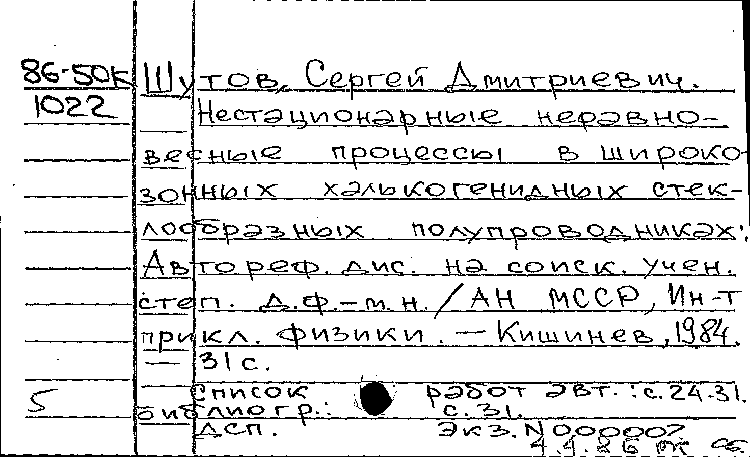 86-50к Шутов, Сергей Дмитриевич.
1022 Нестационарные неравно-
весные процессы в широко-
зонных халькогенидных стек-
лообразных полупроводниках:
Автореф. дис. на соиск. учен.
степ. д.ф.-м.н. / АН МССР, Ин-т
прикл. физики. — Кишинев, 1984.
— 31 с.
Список работ авт.: с. 24-31.
5 библиогр.: с. 31.
ДСП. Экз. N 000007